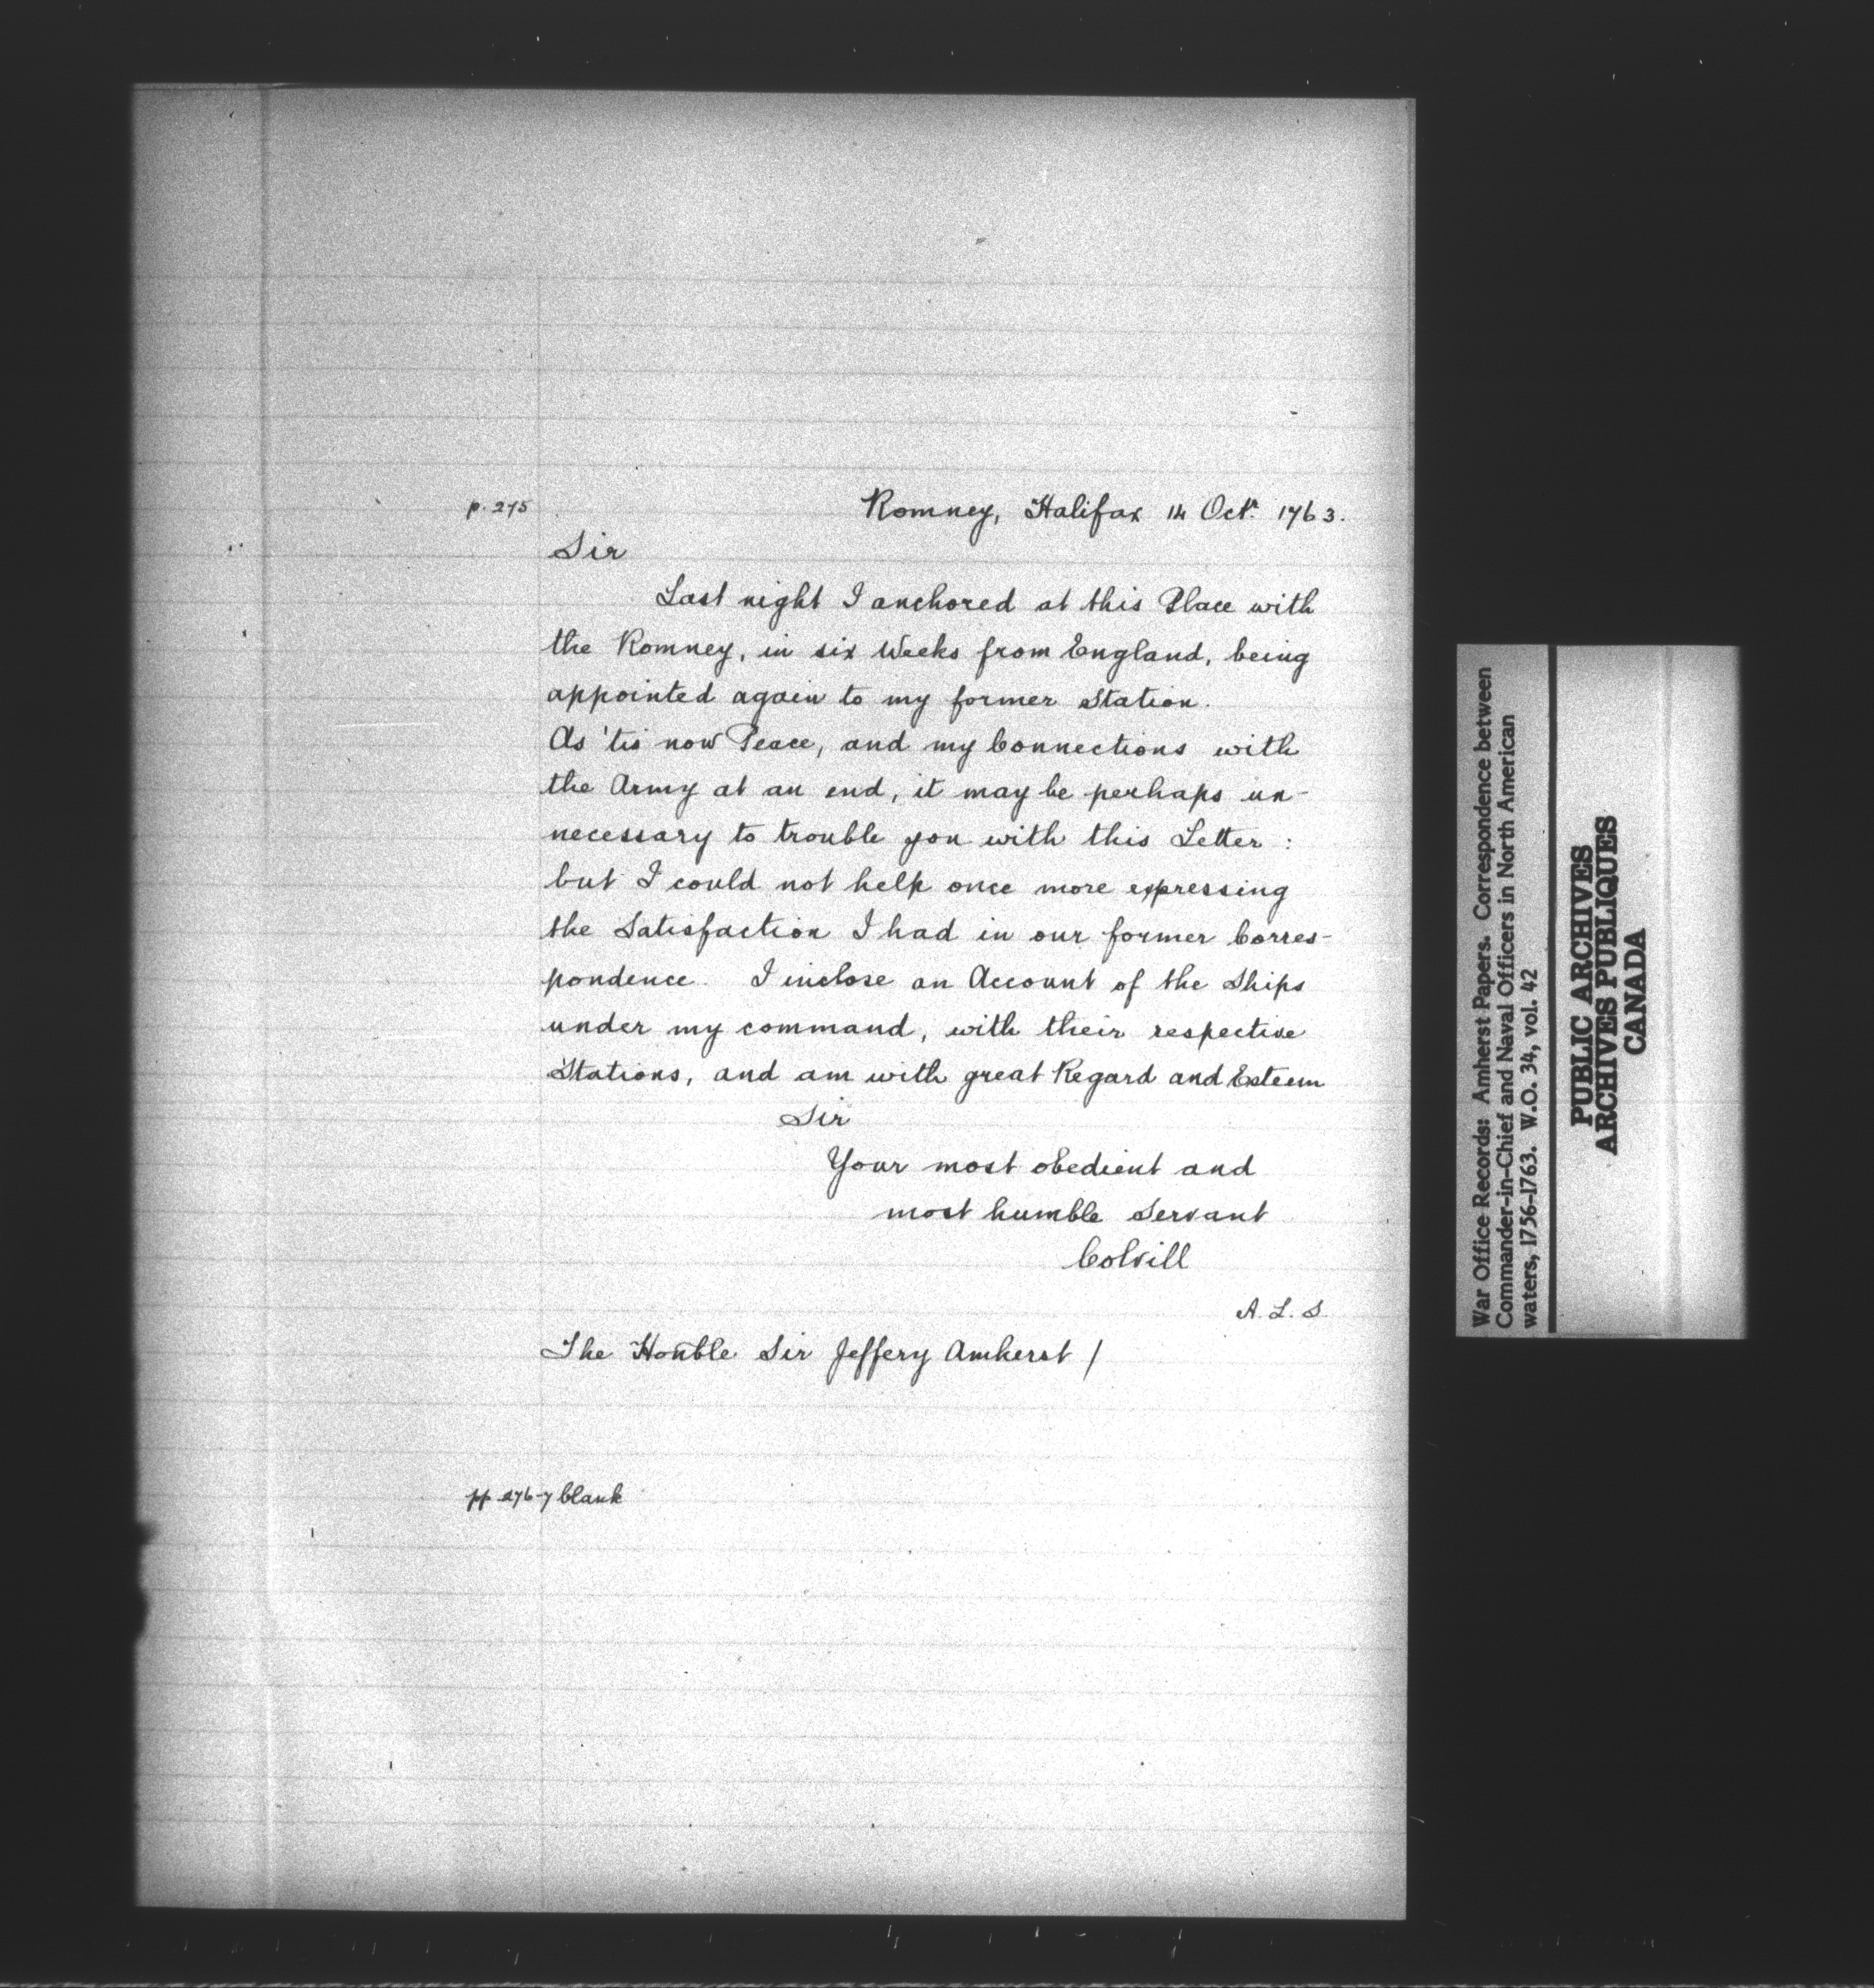 p. 275
Romney, Halifax 14 Octr. 1763.
Sir
Last night I anchored at this Place with
the Romney, in six Weeks from England, being
appointed again to my former Station.
As 'tis now Peace, and my Connections with
the Army at an end, it may be perhaps un-
necessary to trouble you with this Letter :
but I could not help once more expressing
the Satisfaction I had in our former Corres-
pondence. I inclose an Account of the Ships
under my command, with their respective
Stations, and am with great Regard and Esteem
Sir
Your most obedient and
most humble Servant
Colvill
A. L. S.
The Honble. Sir Jeffery Amherst /
pp 276-7 blank
War Office Records: Amherst Papers. Correspondence between
Commander-in-Chief and Naval Officers in North American
waters, 1756-1763. W.O. 34, vol. 42
PUBLIC ARCHIVES
ARCHIVES PUBLIQUES
CANADA